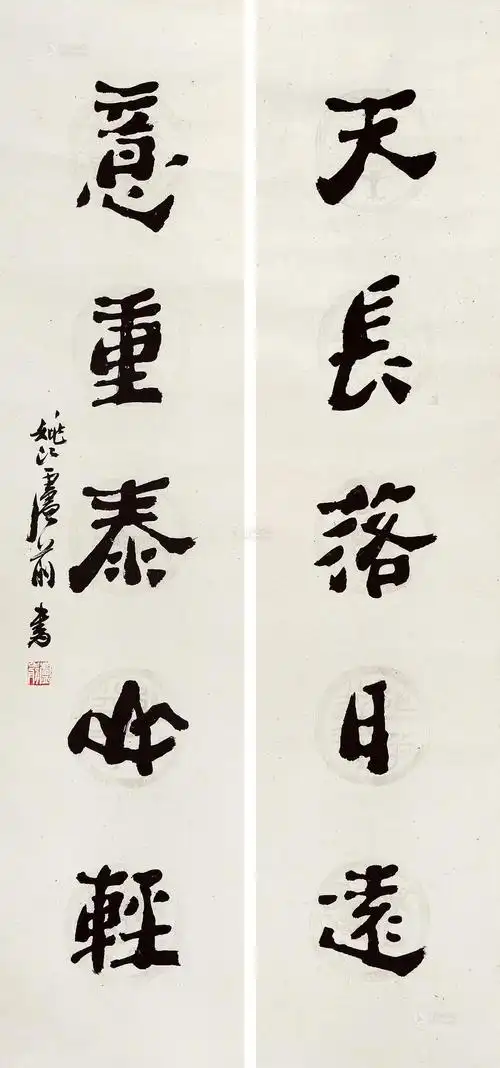 天長落日遠
意重泰山輕
姚江書